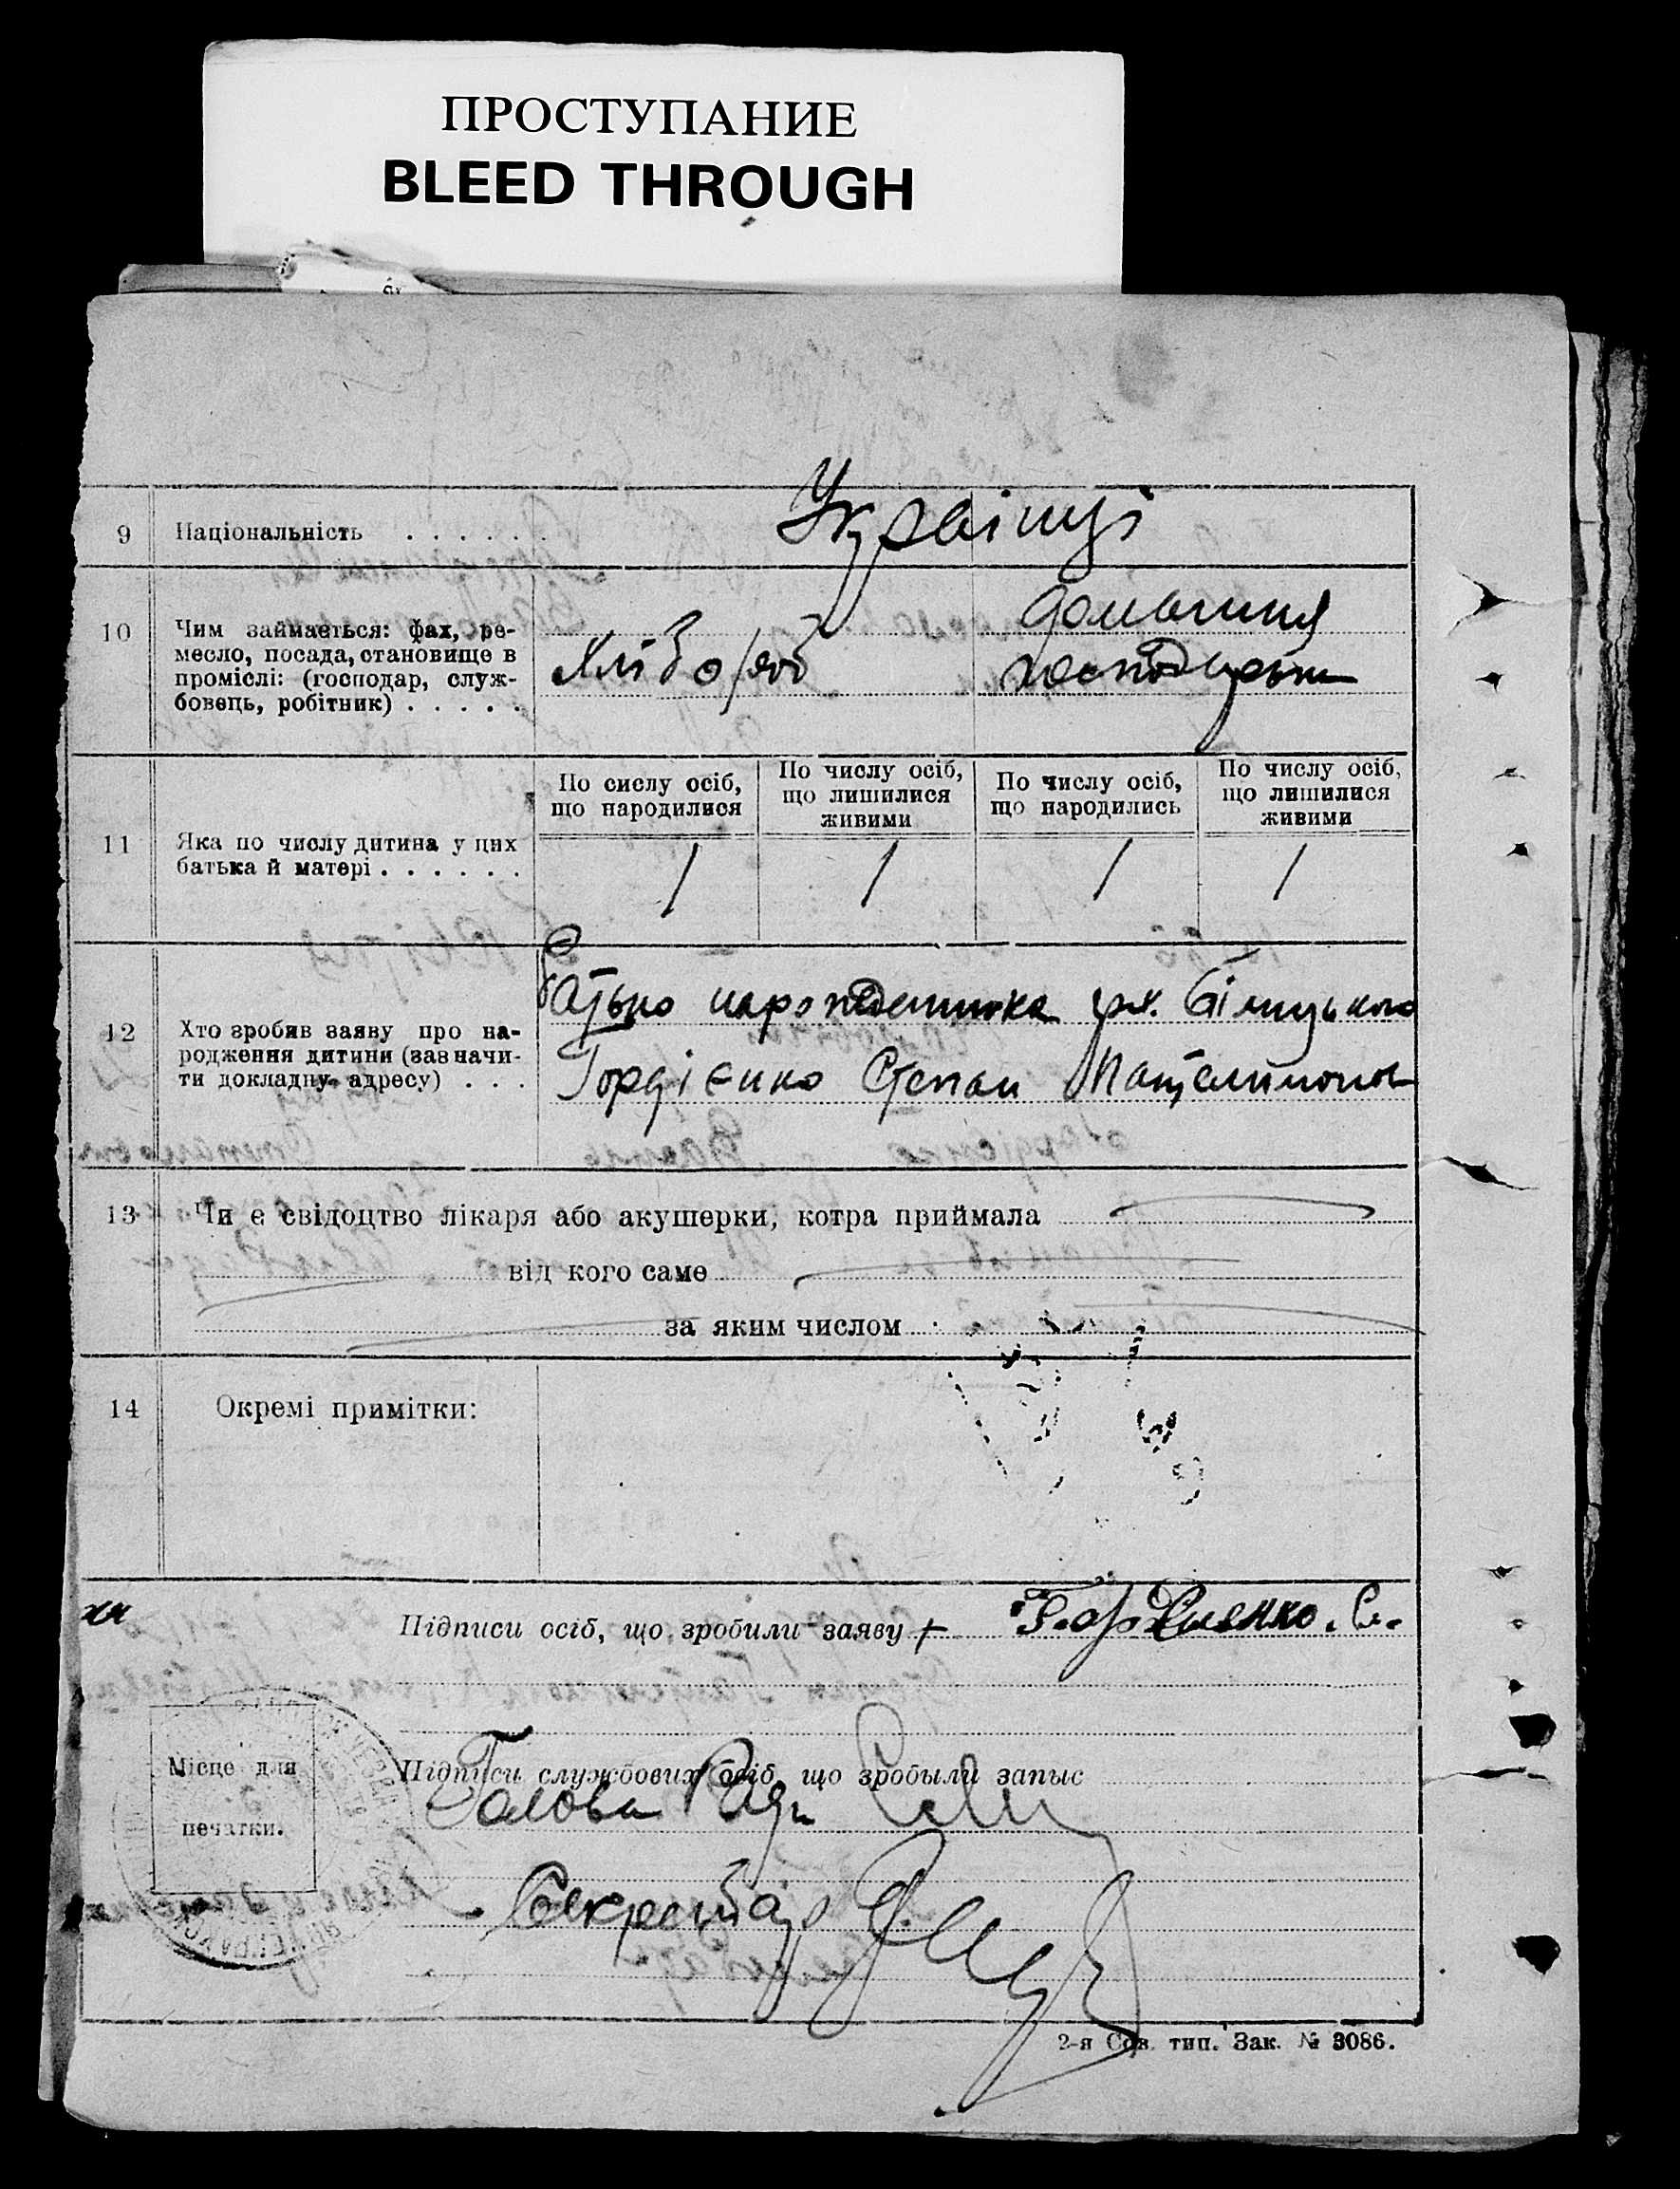 ПРОСТУПАНИЕ
BLEED THROUGH
9 Національність . . . . . .
Українці
10 Чим займається: фах, ре-
месло, посада, становище в
проміслі: (господар, служ-
бовець, робітник) . . . . .
Хлібороб
домашня
господарьки
11 Яка по числу дитина у цих
батька й матері . . . . . .
По сислу осіб,
що народилися
По числу осіб,
що лишилися
живими
По числу осіб,
що народились
По числу осіб,
що лишилися
живими
1 1 1 1
12 Хто зробив заяву про на-
родження дитини (зазначи-
ти докладну адресу) . . .
батько народженника
Гордієнко Степан Пантелимонов
13 Чи є свідоцтво лікаря або акушерки, котра приймала
від кого саме
за яким числом
14 Окремі примітки:
Підписи осіб, що зробили заяву + Гордиенко. С.
Місце для
печатки.
Підписи службових осіб, що зробылы запыс
Голова Ради
Секретар
2-я Сов. тип. Зак. № 3086.